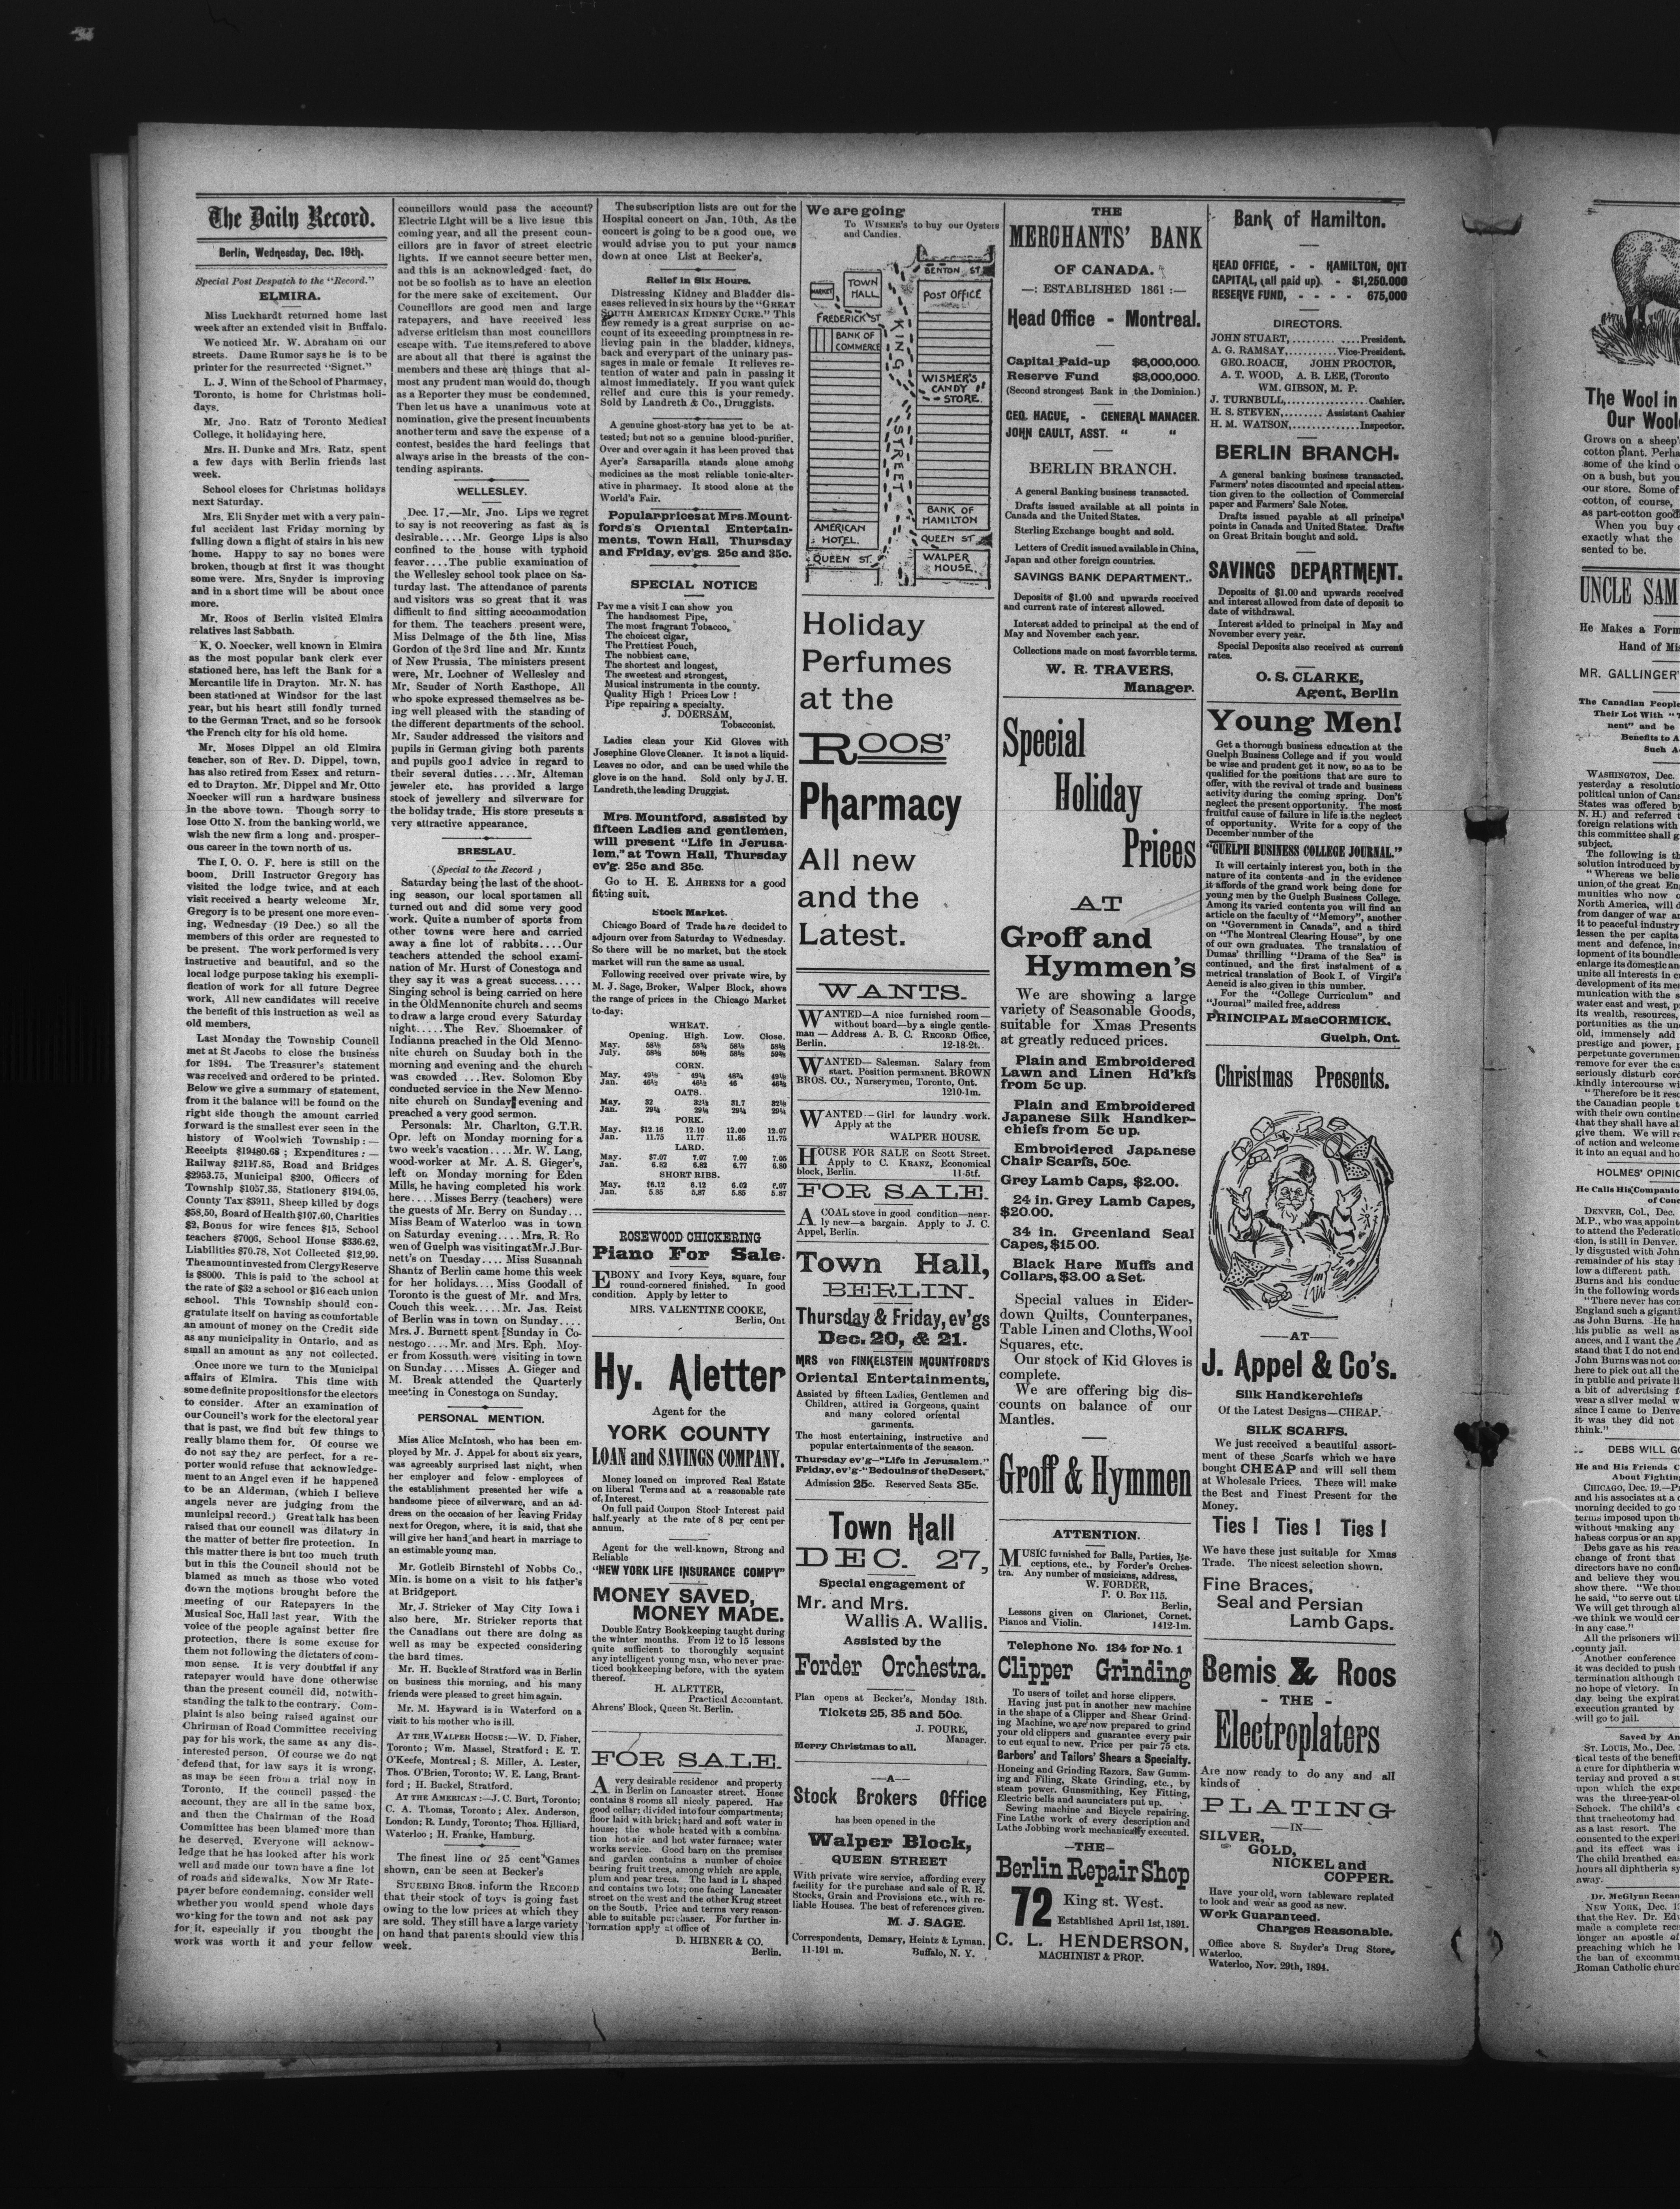 The Daily Record.
Berlin, Wednesday, Dec. 19th.
Special Post Despatch to the "Record."
ELMIRA.
Miss Luckhardt returned home last
week after an extended visit in Buffalo.
We noticed Mr. W. Abraham on our
streets. Dame Rumor says he is to be
printer for the resurrected "Signet."
L. J. Winn of the School of Pharmacy,
Toronto, is home for Christmas holi-
days.
Mr. Jno. Ratz of Toronto Medical
College, it holidaying here.
Mrs. H. Dunke and Mrs. Ratz, spent
a few days with Berlin friends last
week.
School closes for Christmas holidays
next Saturday.
Mrs. Eli Snyder met with a very pain-
ful accident last Friday morning by
falling down a flight of stairs in his new
home. Happy to say no bones were
broken, though at first it was thought
some were. Mrs. Snyder is improving
and in a short time will be about once
more.
Mr. Roos of Berlin visited Elmira
relatives last Sabbath.
K. O. Noecker, well known in Elmira
as the most popular bank clerk ever
stationed here, has left the Bank for a
Mercantile life in Drayton. Mr. N. has
been stationed at Windsor for the last
year, but his heart still fondly turned
to the German Tract, and so he forsook
the French city for his old home.
Mr. Moses Dippel an old Elmira
teacher, son of Rev. D. Dippel, town,
has also retired from Essex and return-
ed to Drayton. Mr. Dippel and Mr. Otto
Noecker will run a hardware business
in the above town. Though sorry to
lose Otto N. from the banking world, we
wish the new firm a long and prosper-
ous career in the town north of us.
The I. O. O. F. here is still on the
boom. Drill Instructor Gregory has
visited the lodge twice, and at each
visit received a hearty welcome Mr.
Gregory is to be present one more even-
ing, Wednesday (19 Dec.) so all the
members of this order are requested to
be present. The work performed is very
instructive and beautiful, and so the
local lodge purpose taking his exempli-
fication of work for all future Degree
work. All new candidates will receive
the benefit of this instruction as well as
old members.
Last Monday the Township Council
met at St Jacobs to close the business
for 1894. The Treasurer's statement
was received and ordered to be printed.
Below we give a summary of statement,
from it the balance will be found on the
right side though the amount carried
forward is the smallest ever seen in the
history of Woolwich Township:—
Receipts $19480.68; Expenditures:—
Railway $2117.85, Road and Bridges
$2953.75, Municipal $200, Officers of
Township $1057.35, Stationery $194.05,
County Tax $3911, Sheep killed by dogs
$58.50, Board of Health $107.60, Charities
$2, Bonus for wire fences $15, School
teachers $7006, School House $336.62,
Liabilities $70.78, Not Collected $12.99.
The amount invested from Clergy Reserve
is $8000. This is paid to the school at
the rate of $32 a school or $16 each union
school. This Township should con-
gratulate itself on having as comfortable
an amount of money on the Credit side
as any municipality in Ontario, and as
small an amount as any not collected.
Once more we turn to the Municipal
affairs of Elmira. This time with
some definite propositions for the electors
to consider. After an examination of
our Council's work for the electoral year
that is past, we find but few things to
really blame them for. Of course we
do not say they are perfect, for a re-
porter would refuse that acknowledge-
ment to an Angel even if he happened
to be an Alderman, (which I believe
angels never are judging from the
municipal record.) Great talk has been
raised that our council was dilatory in
the matter of better fire protection. In
this matter there is but too much truth
but in this the Council should not be
blamed as much as those who voted
down the motions brought before the
meeting of our Ratepayers in the
Musical Soc. Hall last year. With the
voice of the people against better fire
protection, there is some excuse for
them not following the dictaters of com-
mon sense. It is very doubtful if any
ratepayer would have done otherwise
than the present council did, notwith-
standing the talk to the contrary. Com-
plaint is also being raised against our
Chrirman of Road Committee receiving
pay for his work, the same as any dis-
interested person. Of course we do not
defend that, for law says it is wrong,
as may be seen from a trial now in
Toronto. If the council passed the
account, they are all in the same box,
and then the Chairman of the Road
Committee has been blamed more than
he deserved. Everyone will acknow-
ledge that he has looked after his work
well and made our town have a fine lot
of roads and sidewalks. Now Mr Rate-
payer before condemning, consider well
whether you would spend whole days
working for the town and not ask pay
for it, especially if you thought the
work was worth it and your fellow
councillors would pass the account?
Electric Light will be a live issue this
coming year, and all the present coun-
cillors are in favor of street electric
lights. If we cannot secure better men,
and this is an acknowledged fact, do
not be so foolish as to have an election
for the mere sake of excitement. Our
Councillors are good men and large
ratepayers, and have received less
adverse criticism than most councillors
escape with. The items refered to above
are about all that there is against the
members and these are things that al-
most any prudent man would do, though
as a Reporter they must be condemned.
Then let us have a unanimous vote at
nomination, give the present incumbents
another term and save the expense of a
contest, besides the hard feelings that
always arise in the breasts of the con-
tending aspirants.
WELLESLEY.
Dec. 17.—Mr. Jno. Lips we regret
to say is not recovering as fast as is
desirable....Mr. George Lips is also
confined to the house with typhoid
feaver....The public examination of
the Wellesley school took place on Sa-
turday last. The attendance of parents
and visitors was so great that it was
difficult to find sitting accommodation
for them. The teachers present were,
Miss Delmage of the 5th line, Miss
Gordon of the 3rd line and Mr. Kuntz
of New Prussia. The ministers present
were, Mr. Lochner of Wellesley and
Mr. Sauder of North Easthope. All
who spoke expressed themselves as be-
ing well pleased with the standing of
the different departments of the school.
Mr. Sauder addressed the visitors and
pupils in German giving both parents
and pupils good advice in regard to
their several duties....Mr. Alteman
jeweler etc. has provided a large
stock of jewellery and silverware for
the holiday trade. His store presents a
very attractive appearance.
BRESLAU.
(Special to the Record )
Saturday being the last of the shoot-
ing season, our local sportsmen all
turned out and did some very good
work. Quite a number of sports from
other towns were here and carried
away a fine lot of rabbits....Our
teachers attended the school exami-
nation of Mr. Hurst of Conestoga and
they say it was a great success.....
Singing school is being carried on here
in the Old Mennonite church and seems
to draw a large croud every Saturday
night.....The Rev. Shoemaker of
Indianna preached in the Old Menno-
nite church on Sunday both in the
morning and evening and the church
was crowded ...Rev. Solomon Eby
conducted service in the New Menno-
nite church on Sunday evening and
preached a very good sermon.
Personals: Mr. Charlton, G.T.R.
Opr. left on Monday morning for a
two week's vacation....Mr. W. Lang,
wood-worker at Mr. A. S. Gieger's,
left on Monday morning for Eden
Mills, he having completed his work
here....Misses Berry (teachers) were
the guests of Mr. Berry on Sunday...
Miss Beam of Waterloo was in town
on Saturday evening....Mrs. R. Ro
wen of Guelph was visiting at Mr. J. Bur-
nett's on Tuesday.... Miss Susannah
Shantz of Berlin came home this week
for her holidays.... Miss Goodall of
Toronto is the guest of Mr. and Mrs.
Couch this week.....Mr. Jas. Reist
of Berlin was in town on Sunday....
Mrs. J. Burnett spent Sunday in Co-
nestogo....Mr. and Mrs. Eph. Moy-
er from Kossuth were visiting in town
on Sunday....Misses A. Gieger and
M. Break attended the Quarterly
meeting in Conestoga on Sunday.
PERSONAL MENTION.
Miss Alice McIntosh, who has been em-
ployed by Mr. J. Appel for about six years,
was agreeably surprised last night, when
her employer and felow-employees of
the establishment presented her wife a
handsome piece of silverware, and an ad-
dress on the occasion of her leaving Friday
next for Oregon, where, it is said, that she
will give her hand and heart in marriage to
an estimable young man.
Mr. Gotleib Birnstehl of Nobbs Co.,
Min. is home on a visit to his father's
at Bridgeport.
Mr. J. Stricker of May City Iowa i
also here. Mr. Stricker reports that
the Canadians out there are doing as
well as may be expected considering
the hard times.
Mr. H. Buckle of Stratford was in Berlin
on business this morning, and his many
friends were pleased to greet him again.
Mr. M. Hayward is in Waterford on a
visit to his mother who is ill.
AT THE WALPER HOUSE:—W. D. Fisher,
Toronto; Wm. Massel, Stratford; E. T.
O'Keefe, Montreal; S. Miller, A. Lester,
Thos. O'Brien, Toronto; W. E. Lang, Brant-
ford; H. Buckel, Stratford.
AT THE AMERICAN:—J. C. Burt, Toronto;
C. A. Thomas, Toronto; Alex. Anderson,
London; R. Lundy, Toronto; Thos. Hilliard,
Waterloo; H. Franke, Hamburg.
The finest line of 25 cent Games
shown, can be seen at Becker's
STUEBING BROS. inform the RECORD
that their stock of toys is going fast
owing to the low prices at which they
are sold. They still have a large variety
on hand that parents should view this
week.
The subscription lists are out for the
Hospital concert on Jan. 10th, As the
concert is going to be a good one, we
would advise you to put your names
down at once List at Becker's.
Relief in Six Hours.
Distressing Kidney and Bladder dis-
eases relieved in six hours by the "GREAT
SOUTH AMERICAN KIDNEY CURE." This
new remedy is a great surprise on ac-
count of its exceeding promptness in re-
lieving pain in the bladder, kidneys,
back and every part of the uninary pas-
sages in male or female It relieves re-
tention of water and pain in passing it
almost immediately. If you want quick
relief and cure this is your remedy.
Sold by Landreth & Co., Druggists.
A genuine ghost-story has yet to be at-
tested; but not so a genuine blood-purifier.
Over and over again it has been proved that
Ayer's Sarsaparilla stands alone among
medicines as the most reliable tonic-alter-
ative in pharmacy. It stood alone at the
World's Fair.
Popular prices at Mrs. Mount-
fords's Oriental Entertain-
ments, Town Hall, Thursday
and Friday, ev'gs. 25c and 35c.
SPECIAL NOTICE
Pay me a visit I can show you
The handsomest Pipe,
The most fragrant Tobacco,
The choicest cigar,
The Prettiest Pouch,
The nobbiest cane,
The shortest and longest,
The sweetest and strongest,
Musical instruments in the county.
Quality High! Prices Low!
Pipe repairing a specialty.
J. DOERSAM,
Tobacconist.
Ladies clean your Kid Gloves with
Josephine Glove Cleaner. It is not a liquid-
Leaves no odor, and can be used while the
glove is on the hand. Sold only by J. H.
Landreth, the leading Druggist.
Mrs. Mountford, assisted by
fifteen Ladies and gentlemen,
will present "Life in Jerusa-
lem," at Town Hall, Thursday
ev'g. 25c and 35c.
Go to H. E. AHRENS for a good
fitting suit.
Stock Market.
Chicago Board of Trade have decided to
adjourn over from Saturday to Wednesday.
So there will be no market, but the stock
market will run the same as usual.
Following received over private wire, by
M. J. Sage, Broker, Walper Block, shows
the range of prices in the Chicago Market
to-day:
WHEAT.
Opening. High. Low. Close.
May.
July.
CORN.
May.
Jan.
OATS.
May.
Jan.
PORK.
May. $12.16 12.19 12.00 12.07
Jan. 11.75 11.77 11.65 11.75
LARD.
May. $7.07 7.07 7.00 7.05
Jan. 6.82 6.82 6.77 6.80
SHORT RIBS.
May. $6.12 6.12 6.02 6.07
Jan. 5.85 5.87 5.85 5.87
ROSEWOOD CHICKERING
Piano For Sale.
EBONY and Ivory Keys, square, four
round-cornered finished. In good
condition. Apply by letter to
MRS. VALENTINE COOKE,
Berlin, Ont
Hy. Aletter
Agent for the
YORK COUNTY
LOAN and SAVINGS COMPANY.
Money loaned on improved Real Estate
on liberal Terms and at a reasonable rate
of Interest.
On full paid Coupon Stock Interest paid
half.yearly at the rate of 8 per cent per
annum.
Agent for the well-known, Strong and
Reliable
"NEW YORK LIFE INSURANCE COMP'Y"
MONEY SAVED,
MONEY MADE.
Double Entry Bookkeeping taught during
the winter months. From 12 to 15 lessons
quite sufficient to thoroughly acquaint
any intelligent young man, who never prac-
ticed bookkeeping before, with the system
thereof.
H. ALETTER,
Practical Accountant.
Ahrens' Block, Queen St. Berlin.
FOR SALE.
A very desirable residence and property
in Berlin on Lancaster street. House
contains 8 rooms all nicely papered. Has
good cellar; divided into four compartments;
floor laid with brick; hard and soft water in
house; the whole heated with a combina-
tion hot-air and hot water furnace; water
works service. Good barn on the premises
and garden contains a number of choice
bearing fruit trees, among which are apple,
plum and pear trees. The land is L shaped
and contains two lots; one facing Lancaster
street on the west and the other Krug street
on the South. Price and terms very reason-
able to suitable purchaser. For further in-
formation apply at office of
D. HIBNER & CO.
Berlin.
We are going
To WISMER'S to buy our Oysters
and Candies.
BENTON ST
MARKET
TOWN
HALL
POST OFFICE
FREDERICK ST
BANK OF
COMMERCE
KING STREET
WISMER'S
CANDY
STORE.
BANK OF
HAMILTON
AMERICAN
HOTEL.
QUEEN ST
QUEEN ST.
WALPER
HOUSE.
Holiday
Perfumes
at the
ROOS'
Pharmacy
All new
and the
Latest.
WANTS.
WANTED—A nice furnished room—
without board—by a single gentle-
man—Address A. B. C. RECORD Office,
Berlin. 12-18-2t..
WANTED—Salesman. Salary from
start. Position permanent. BROWN
BROS. CO., Nurserymen, Toronto, Ont.
1210-1m.
WANTED—Girl for laundry work.
Apply at the
WALPER HOUSE.
HOUSE FOR SALE on Scott Street.
Apply to C. KRANZ, Economical
block, Berlin. 11-5tf.
FOR SALE.
A COAL stove in good condition—near-
ly new—a bargain. Apply to J. C.
Appel, Berlin.
Town Hall,
BERLIN.
Thursday & Friday, ev'gs
Dec. 20, & 21.
MRS von FINKELSTEIN MOUNTFORD'S
Oriental Entertainments,
Assisted by fifteen Ladies, Gentlemen and
Children, attired in Gorgeous, quaint
and many colored oriental
garments.
The most entertaining, instructive and
popular entertainments of the season.
Thursday ev'g—"Life in Jerusalem."
Friday, ev'g-"Bedouins of the Desert."
Admission 25c. Reserved Seats 35c.
Town Hall
DEC. 27,
Special engagement of
Mr. and Mrs.
Wallis A. Wallis.
Assisted by the
Forder Orchestra.
Plan opens at Becker's, Monday 18th.
Tickets 25, 35 and 50c.
J. POURE,
Manager.
Merry Christmas to all.
—A—
Stock Brokers Office
has been opened in the
Walper Block,
QUEEN STREET
With private wire service, affording every
facility for the purchase and sale of R. R.
Stocks, Grain and Provisions etc., with re-
liable Houses. The best of references given.
M. J. SAGE.
Correspondents, Demary, Heintz & Lyman.
11-191 m. Buffalo, N. Y.
THE
MERCHANTS' BANK
OF CANADA.
—: ESTABLISHED 1861 :—
Head Office - Montreal.
Capital Paid-up $6,000,000.
Reserve Fund $3,000,000.
(Second strongest Bank in the Dominion.)
GEO. HAGUE, - GENERAL MANAGER.
JOHN GAULT, ASST. " "
BERLIN BRANCH.
A general Banking business transacted.
Drafts issued available at all points in
Canada and the United States.
Sterling Exchange bought and sold.
Letters of Credit issued available in China,
Japan and other foreign countries.
SAVINGS BANK DEPARTMENT..
Deposits of $1.00 and upwards received
and current rate of interest allowed.
Interest added to principal at the end of
May and November each year.
Collections made on most favorrble terms.
W. R. TRAVERS,
Manager.
Special
Holiday
Prices
AT
Groff and
Hymmen's
We are showing a large
variety of Seasonable Goods,
suitable for Xmas Presents
at greatly reduced prices.
Plain and Embroidered
Lawn and Linen Hd'kfs
from 5c up.
Plain and Embroidered
Japanese Silk Handker-
chiefs from 5c up.
Embroidered Japanese
Chair Scarfs, 50c.
Grey Lamb Caps, $2.00.
24 in. Grey Lamb Capes,
$20.00.
34 in. Greenland Seal
Capes, $15.00.
Black Hare Muffs and
Collars, $3.00 a Set.
Special values in Eider-
down Quilts, Counterpanes,
Table Linen and Cloths, Wool
Squares, etc.
Our stock of Kid Gloves is
complete.
We are offering big dis-
counts on balance of our
Mantles.
Groff & Hymmen
ATTENTION.
MUSIC furnished for Balls, Parties, Re-
ceptions, etc., by Forder's Orches-
tra. Any number of musicians, address,
W. FORDER,
P. O. Box 115.
Berlin,
Lessons given on Clarionet, Cornet.
Pianos and Violin. 1412-1m.
Telephone No. 134 for No. 1
Clipper Grinding
To users of toilet and horse clippers.
Having just put in another new machine
in the shape of a Clipper and Shear Grind-
ing Machine, we are now prepared to grind
your old clippers and guarantee every pair
to cut equal to new. Price per pair 75 cts.
Barbers' and Tailors' Shears a Specialty.
Honeing and Grinding Razors, Saw Gumm-
ing and Filing, Skate Grinding, etc., by
steam power. Gunsmithing, Key Fitting,
Electric bells and anunciaters put up.
Sewing machine and Bicycle repairing.
Fine Lathe work of every description and
Lathe Jobbing work mechanically executed.
—THE—
Berlin Repair Shop
72 King st. West.
Established April 1st, 1891.
C. L. HENDERSON,
MACHINIST & PROP.
Bank of Hamilton.
HEAD OFFICE, - - HAMILTON, ONT
CAPITAL, (all paid up). - $1,250.000
RESERVE FUND, - - - - 675,000
DIRECTORS.
JOHN STUART,..............President.
A. G. RAMSAY,..........Vice-President.
GEO. ROACH, JOHN PROCTOR,
A. T. WOOD, A. B. LEE, (Toronto
WM. GIBSON, M. P.
J. TURNBULL,.................Cashier.
H. S. STEVEN,........ Assistant Cashier
H. M. WATSON,..............Inspector.
BERLIN BRANCH.
A general banking business transacted.
Farmers' notes discounted and special atten-
tion given to the collection of Commercial
paper and Farmers' Sale Notes.
Drafts issued payable at all principal
points in Canada and United States. Drafts
on Great Britain bought and sold.
SAVINGS DEPARTMENT.
Deposits of $1.00 and upwards received
and interest allowed from date of deposit to
date of withdrawal.
Interest added to principal in May and
November every year.
Special Deposits also received at current
rates.
O. S. CLARKE,
Agent, Berlin
Young Men!
Get a thorough business education at the
Guelph Business College and if you would
be wise and prudent get it now, so as to be
qualified for the positions that are sure to
offer, with the revival of trade and business
activity during the coming spring. Don't
neglect the present opportunity. The most
fruitful cause of failure in life is the neglect
of opportunity. Write for a copy of the
December number of the
"GUELPH BUSINESS COLLEGE JOURNAL."
It will certainly interest you, both in the
nature of its contents and in the evidence
it affords of the grand work being done for
young men by the Guelph Business College.
Among its varied contents you will find an
article on the faculty of "Memory", another
on "Government in Canada", and a third
on "The Montreal Clearing House", by one
of our own graduates. The translation of
Dumas' thrilling "Drama of the Sea" is
continued, and the first instalment of a
metrical translation of Book I. of Virgil's
Aeneid is also given in this number.
For the "College Curriculum" and
"Journal" mailed free, address
PRINCIPAL MacCORMICK,
Guelph, Ont.
Christmas Presents.
—AT—
J. Appel & Co's.
Silk Handkerchiefs
Of the Latest Designs—CHEAP.
SILK SCARFS.
We just received a beautiful assort-
ment of these Scarfs which we have
bought CHEAP and will sell them
at Wholesale Prices. These will make
the Best and Finest Present for the
Money.
Ties! Ties! Ties!
We have these just suitable for Xmas
Trade. The nicest selection shown.
Fine Braces,
Seal and Persian
Lamb Caps.
Bemis & Roos
- THE -
Electroplaters
Are now ready to do any and all
kinds of
PLATING
—IN—
SILVER,
GOLD,
NICKEL and
COPPER.
Have your old, worn tableware replated
to look and wear as good as new.
Work Guaranteed.
Charges Reasonable.
Office above S. Snyder's Drug Store,
Waterloo.
Waterloo, Nov. 29th, 1894.
The Wool in
Our Wool
Grows on a sheep'
cotton plant. Perha
some of the kind o
on a bush, but you
our store. Some of
cotton, of course,
as part-cotton good
When you buy
exactly what the
sented to be.
UNCLE SAM
He Makes a Form
Hand of Mi
MR. GALLINGER'
The Canadian People
Their Lot With "
nent" and be
Benefits to A
Such A
WASHINGTON, Dec.
yesterday a resolutio
political union of Can
States was offered by
N. H.) and referred t
foreign relations with
this committee shall g
subject.
The following is th
solution introduced by
"Whereas we belie
union of the great En
munities who now o
North America, will d
from danger of war an
it to peaceful industry
lessen the per capita
ment and defence, ins
lopment of its boundles
enlarge its domestic an
unite all interests in c
development of its me
munication with the s
water east and west, p
its wealth, resources,
portunities as the un
old, immensely add
prestige and power, p
perpetuate governmen
remove for ever the ca
seriously disturb cord
kindly intercourse wi
"Therefore be it reso
the Canadian people t
with their own contine
that they shall have al
give them. We will re
of action and welcome
it into an equal and ho
HOLMES' OPINIO
He Calls His Companio
of Conc
DENVER, Col., Dec.
M.P., who was appoint
to attend the Federatio
tion, is still in Denver.
ly disgusted with John
remainder of his stay i
low a different path.
Burns and his conduc
in the following words
"There never has com
England such a giganti
as John Burns. He ha
his public as well as
ances, and I want the A
stand that I do not end
John Burns was not con
here to pick out all the
a bit of advertising f
wear a silver medal w
since I came to Denve
it was they did not
think."
DEBS WILL GO
He and His Friends C
About Fightin
CHICAGO, Dec. 19.—P
and his associates at a c
morning decided to go
terms imposed upon the
without making any
habeas corpus or an app
Debs gave as his rea
change of front that
directors have no confi
and believe they wou
show there. "We thou
he said, "to serve out t
We will get through al
we think we would cer
in any case."
All the prisoners will
county jail.
Another conference
it was decided to push
termination although t
no hope of victory. In
day being the expirat
execution granted by
will go to jail.
Saved by An
ST. LOUIS, Mo., Dec.
tical tests of the benefit
a cure for diphtheria w
terday and proved a su
upon which the expe
was the three-year-ol
Schock. The child's c
that tracheotomy had
as a last resort. The
consented to the experi
and its effect was i
The child breathed eas
hours all diphtheria sy
away.
Dr. McGlynn Recan
NEW YORK, Dec. 1
that the Rev. Dr. Edw
made a complete reca
longer an apostle of
preaching which he
the ban of excommu
Roman Catholic churc